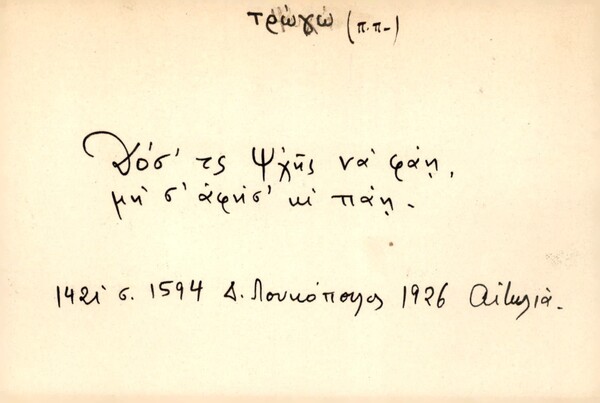 τρώγω (π.π-)
Δόσ' τς Ψ'χῆς νὰ φάῃ,
μὴ σ' ἀφήσ' κὶ πάῃ.
142 σ. 1594 Δ. Λουκόπουλος 1926 Αἰτωλία.